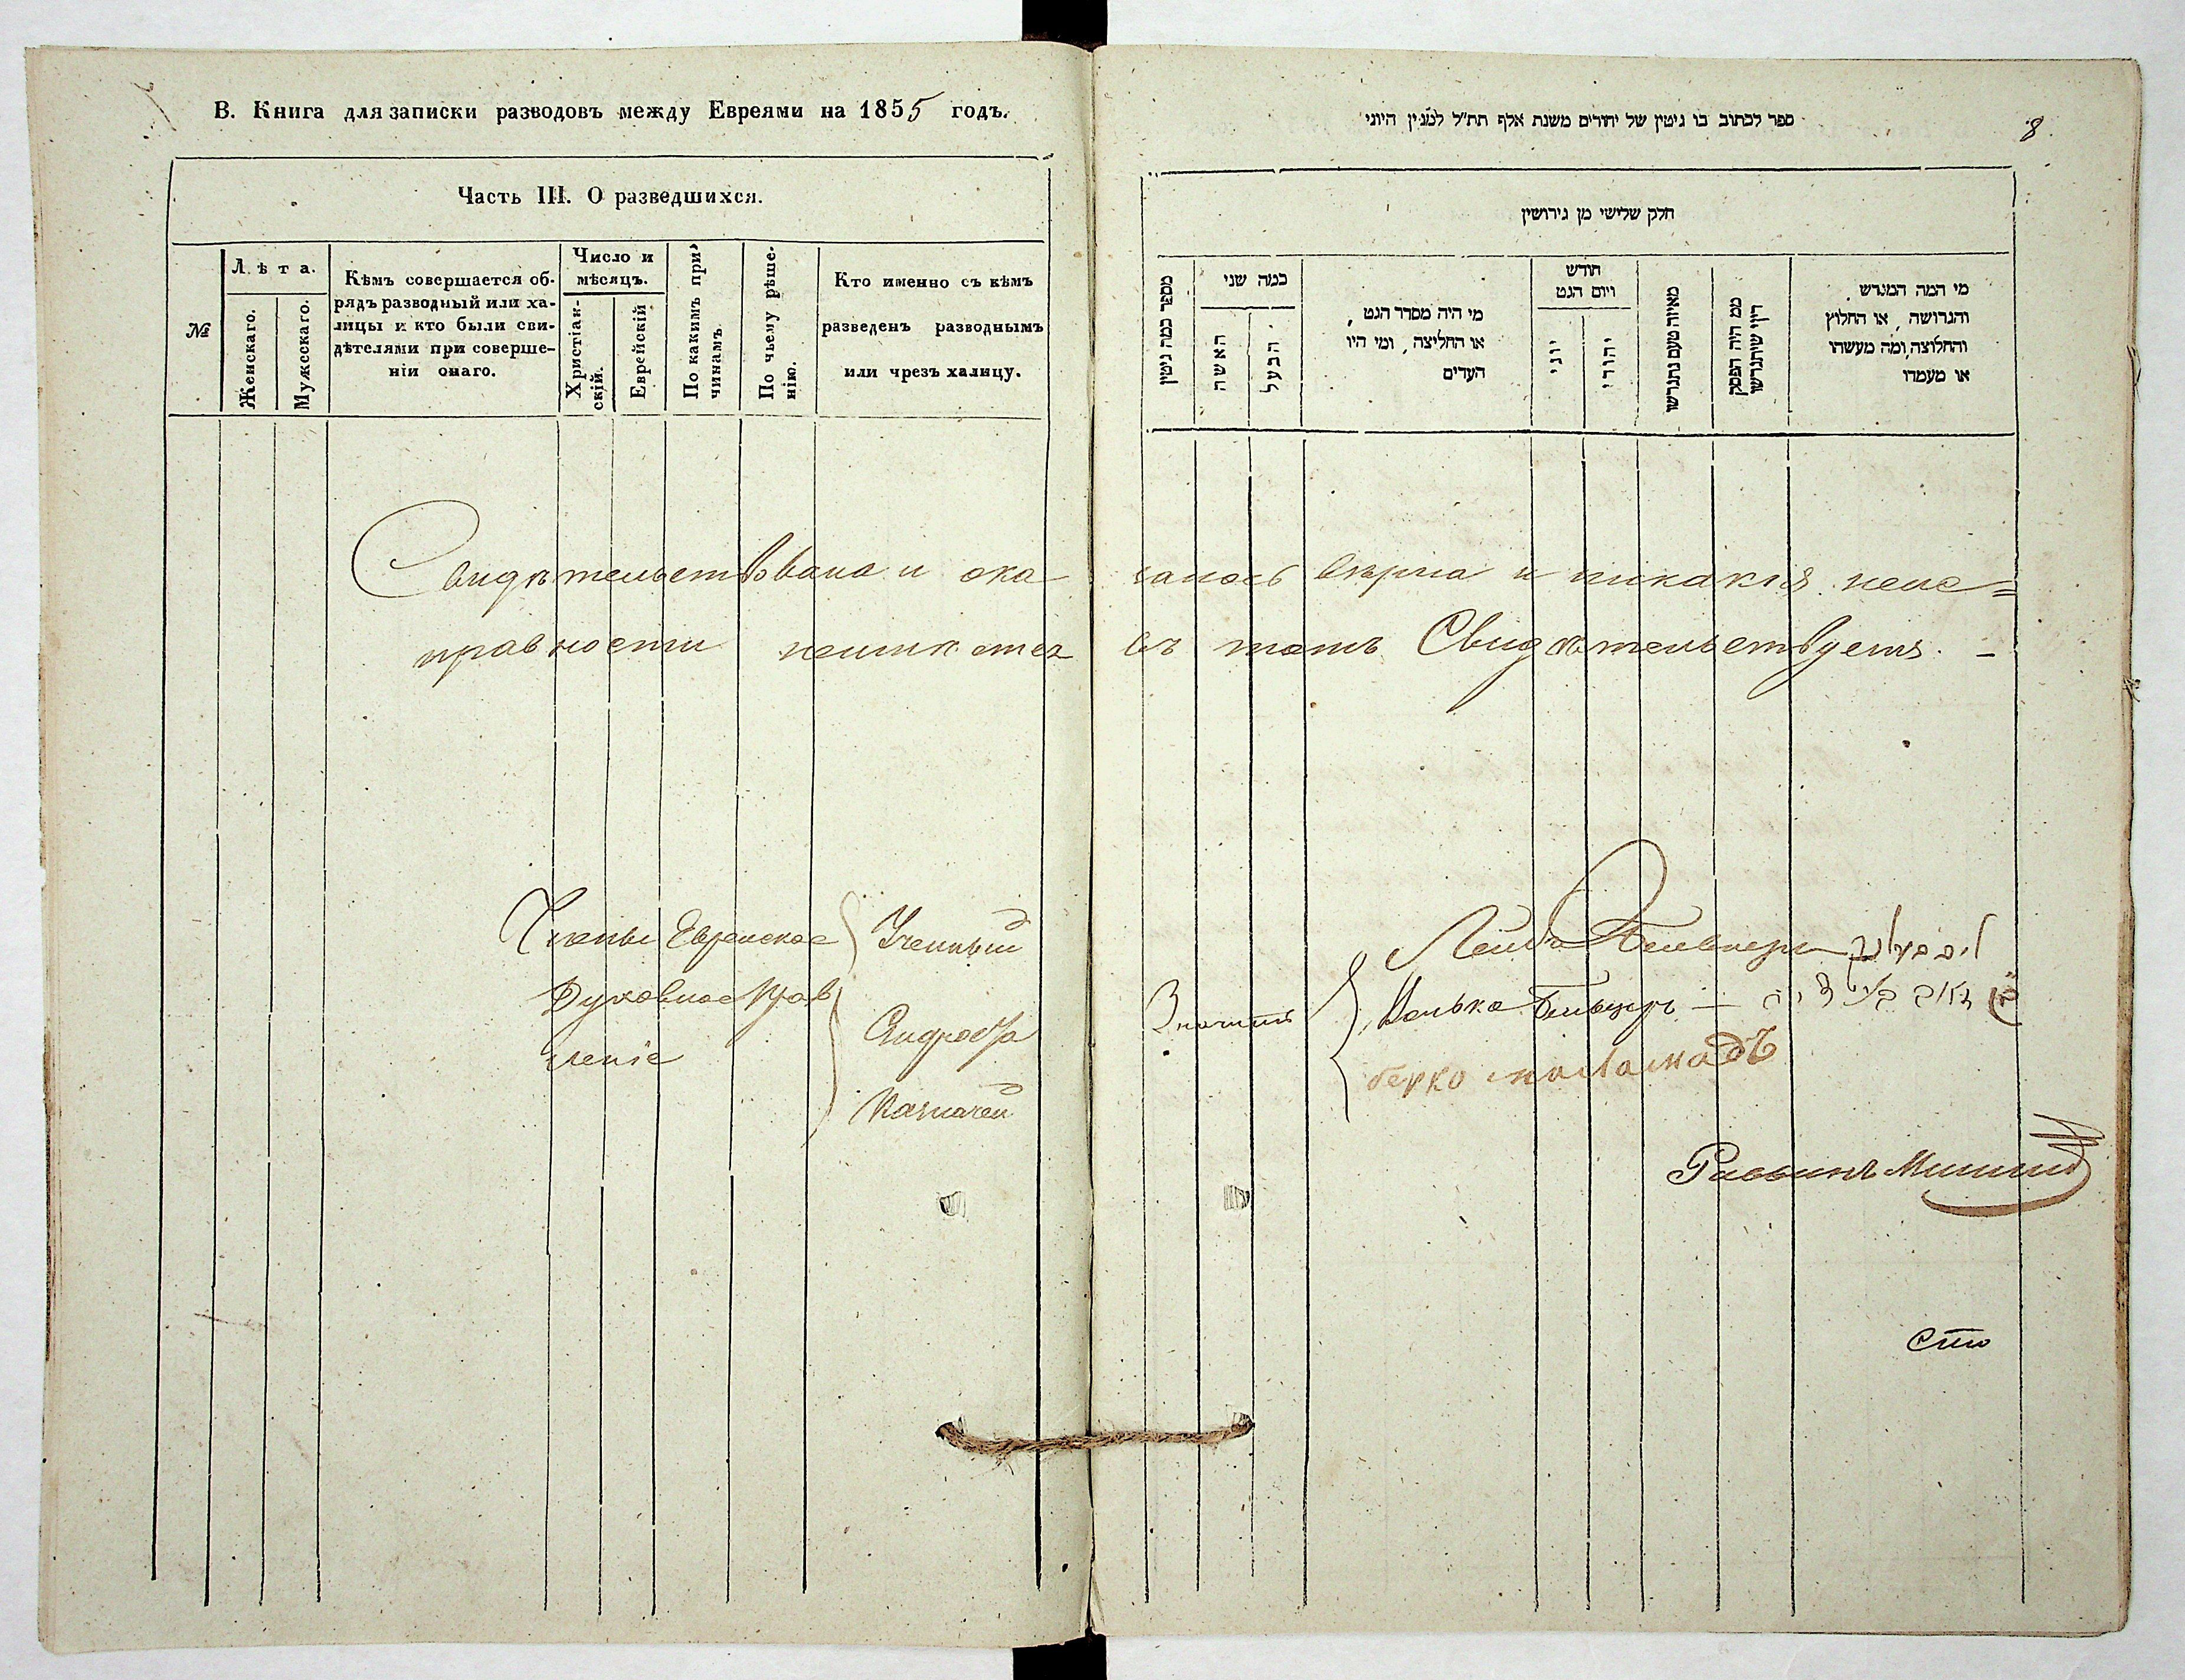 В. Книга для записки разводовъ между Евреями на 1855 годъ.
Часть III. О разведшихся.
№
Лѣта.
Женскаго.
Мужескаго.
Кѣмъ совершается об-
рядъ разводный или ха-
лицы и кто были сви-
дѣтелями при соверше-
ніи онаго.
Число и
мѣсяцъ.
Христіан-
скій.
Еврейскій
По какимъ при-
чинамъ.
По чьему рѣше-
нію.
Кто именно съ кѣмъ
разведенъ разводнымъ
или чрезъ халицу.
ספר לכתוב בו גיטין של יהודים משנת אלף תת"ל למנין היוני
8
חלק שלישי מן גירושין
מספר כמה גיטין
כמה שני
האשה
הבעל
מי היה מסדר הגט,
או החליצה, ומי היו
העדים
חודש
ויום הגט
יוני
יהודי
מאיזה טעם נתגרשו
ממי היה הפסק
דין שיתגרשו
מי המה המגרש
והגרושה, או החלוץ
והחלוצה, ומה מעשהו
או מעמדו
Свидѣтельствована и ока залось вѣрна и никакія неис=
правности неимѣетсь въ томъ Свидѣтельствуетъ. —
Члены Еврейскае
Духовнае Прав
леніе
Ученный
Казначей
Лейба
Берко
Раввинъ
сто